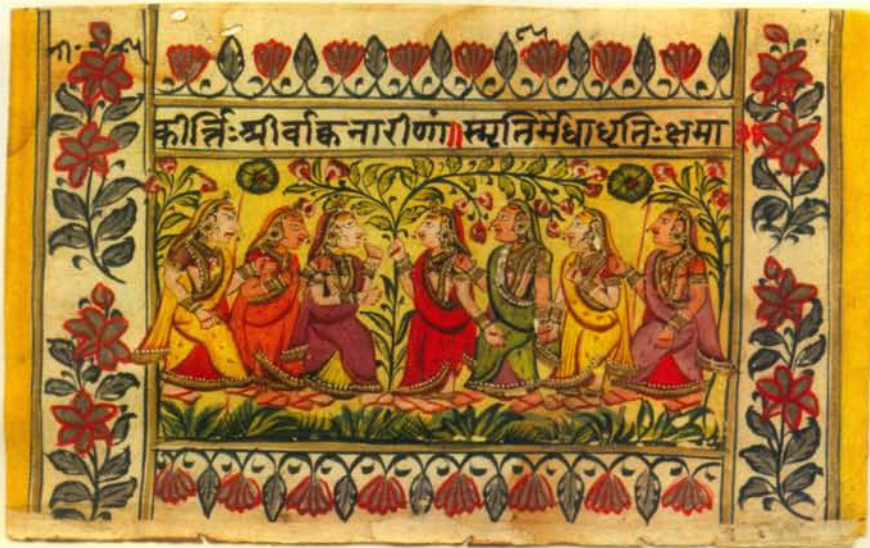 कीर्त्तिःश्रीर्वाक्चनारीणां॥स्मृतिर्मेधाधृतिःक्षमा